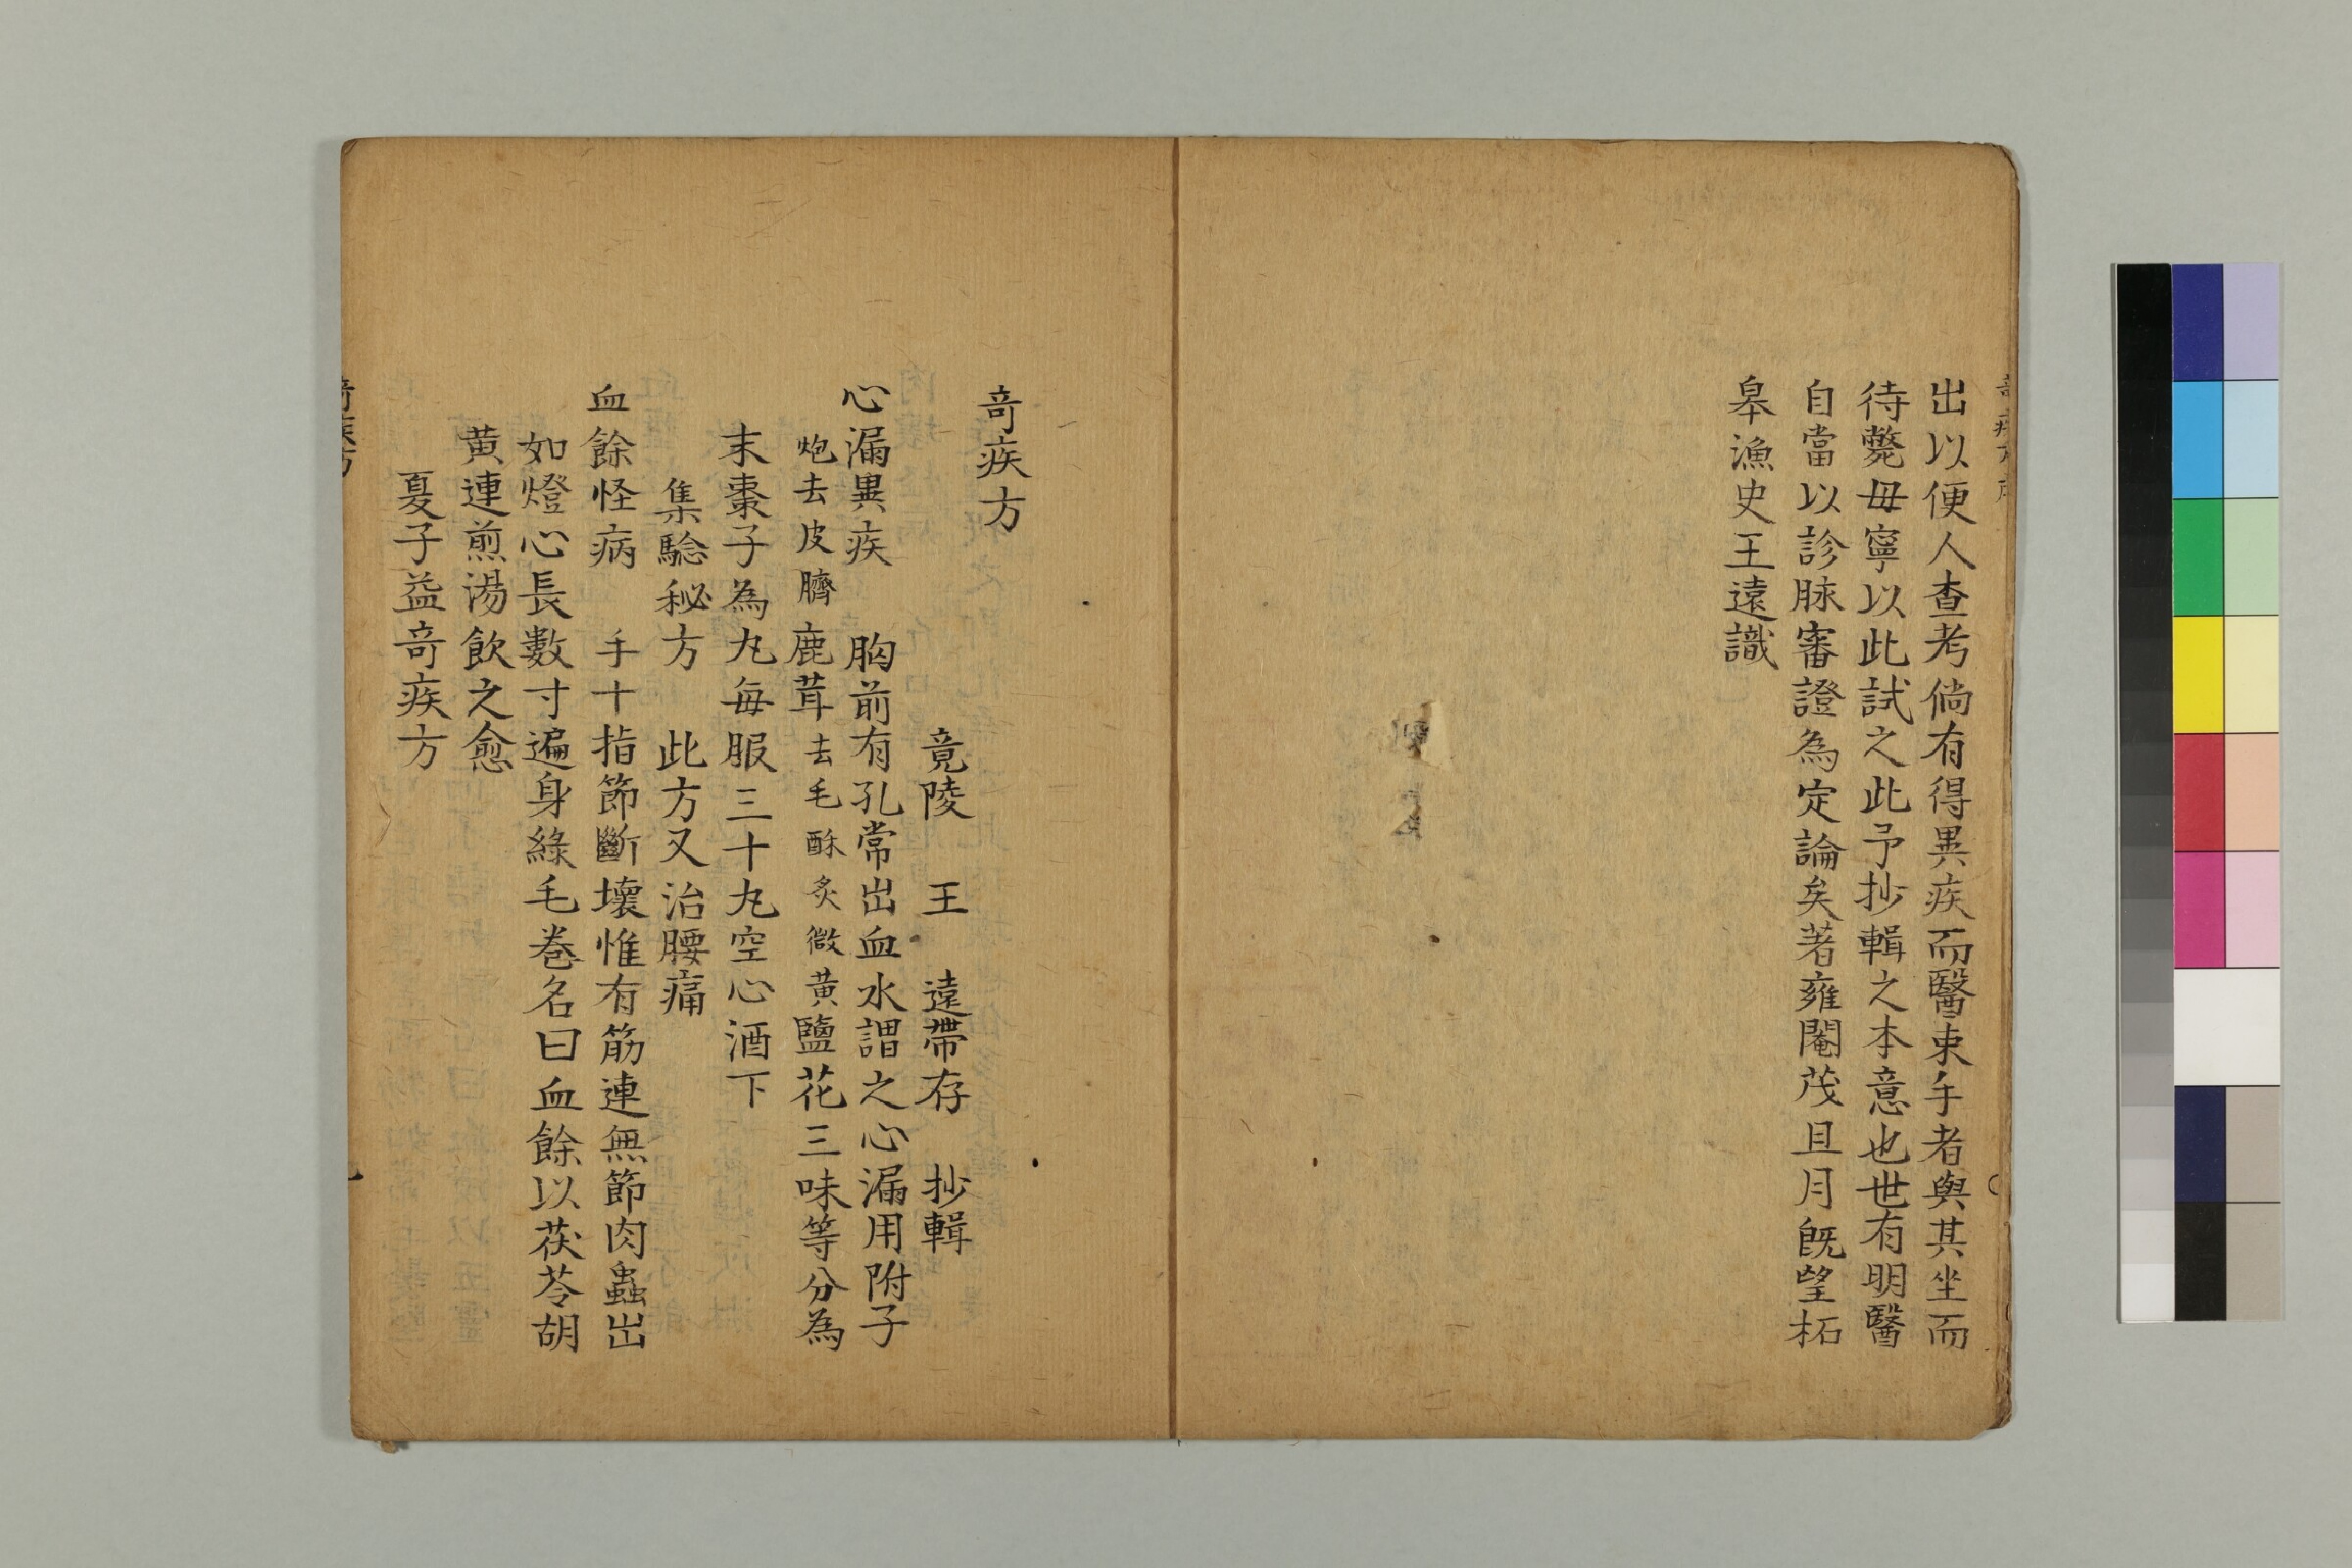 出以便人査考倘有得異疾而醫束手者與其坐而
待斃毋寧以此試之此予抄輯之本意也世有明醫
自當以診脉審證為定論矣著雍閹茂且月旣望柘
皋漁史王遠識
奇疾方
竟陵 王 遠帶存 抄輯
心漏異疾 胸前有孔常出血水謂之心漏用附子
炮去皮臍鹿茸去毛酥炙微黄鹽花三味等分為
末棗子為丸每服三十丸空心酒下
集驗秘方 此方又治腰痛
血餘怪病 手十指節斷壞惟有筋連無節肉蟲出
如燈心長數寸遍身綠毛卷名曰血餘以茯苓胡
黄連煎湯飲之愈
夏子益奇疾方
奇疾方